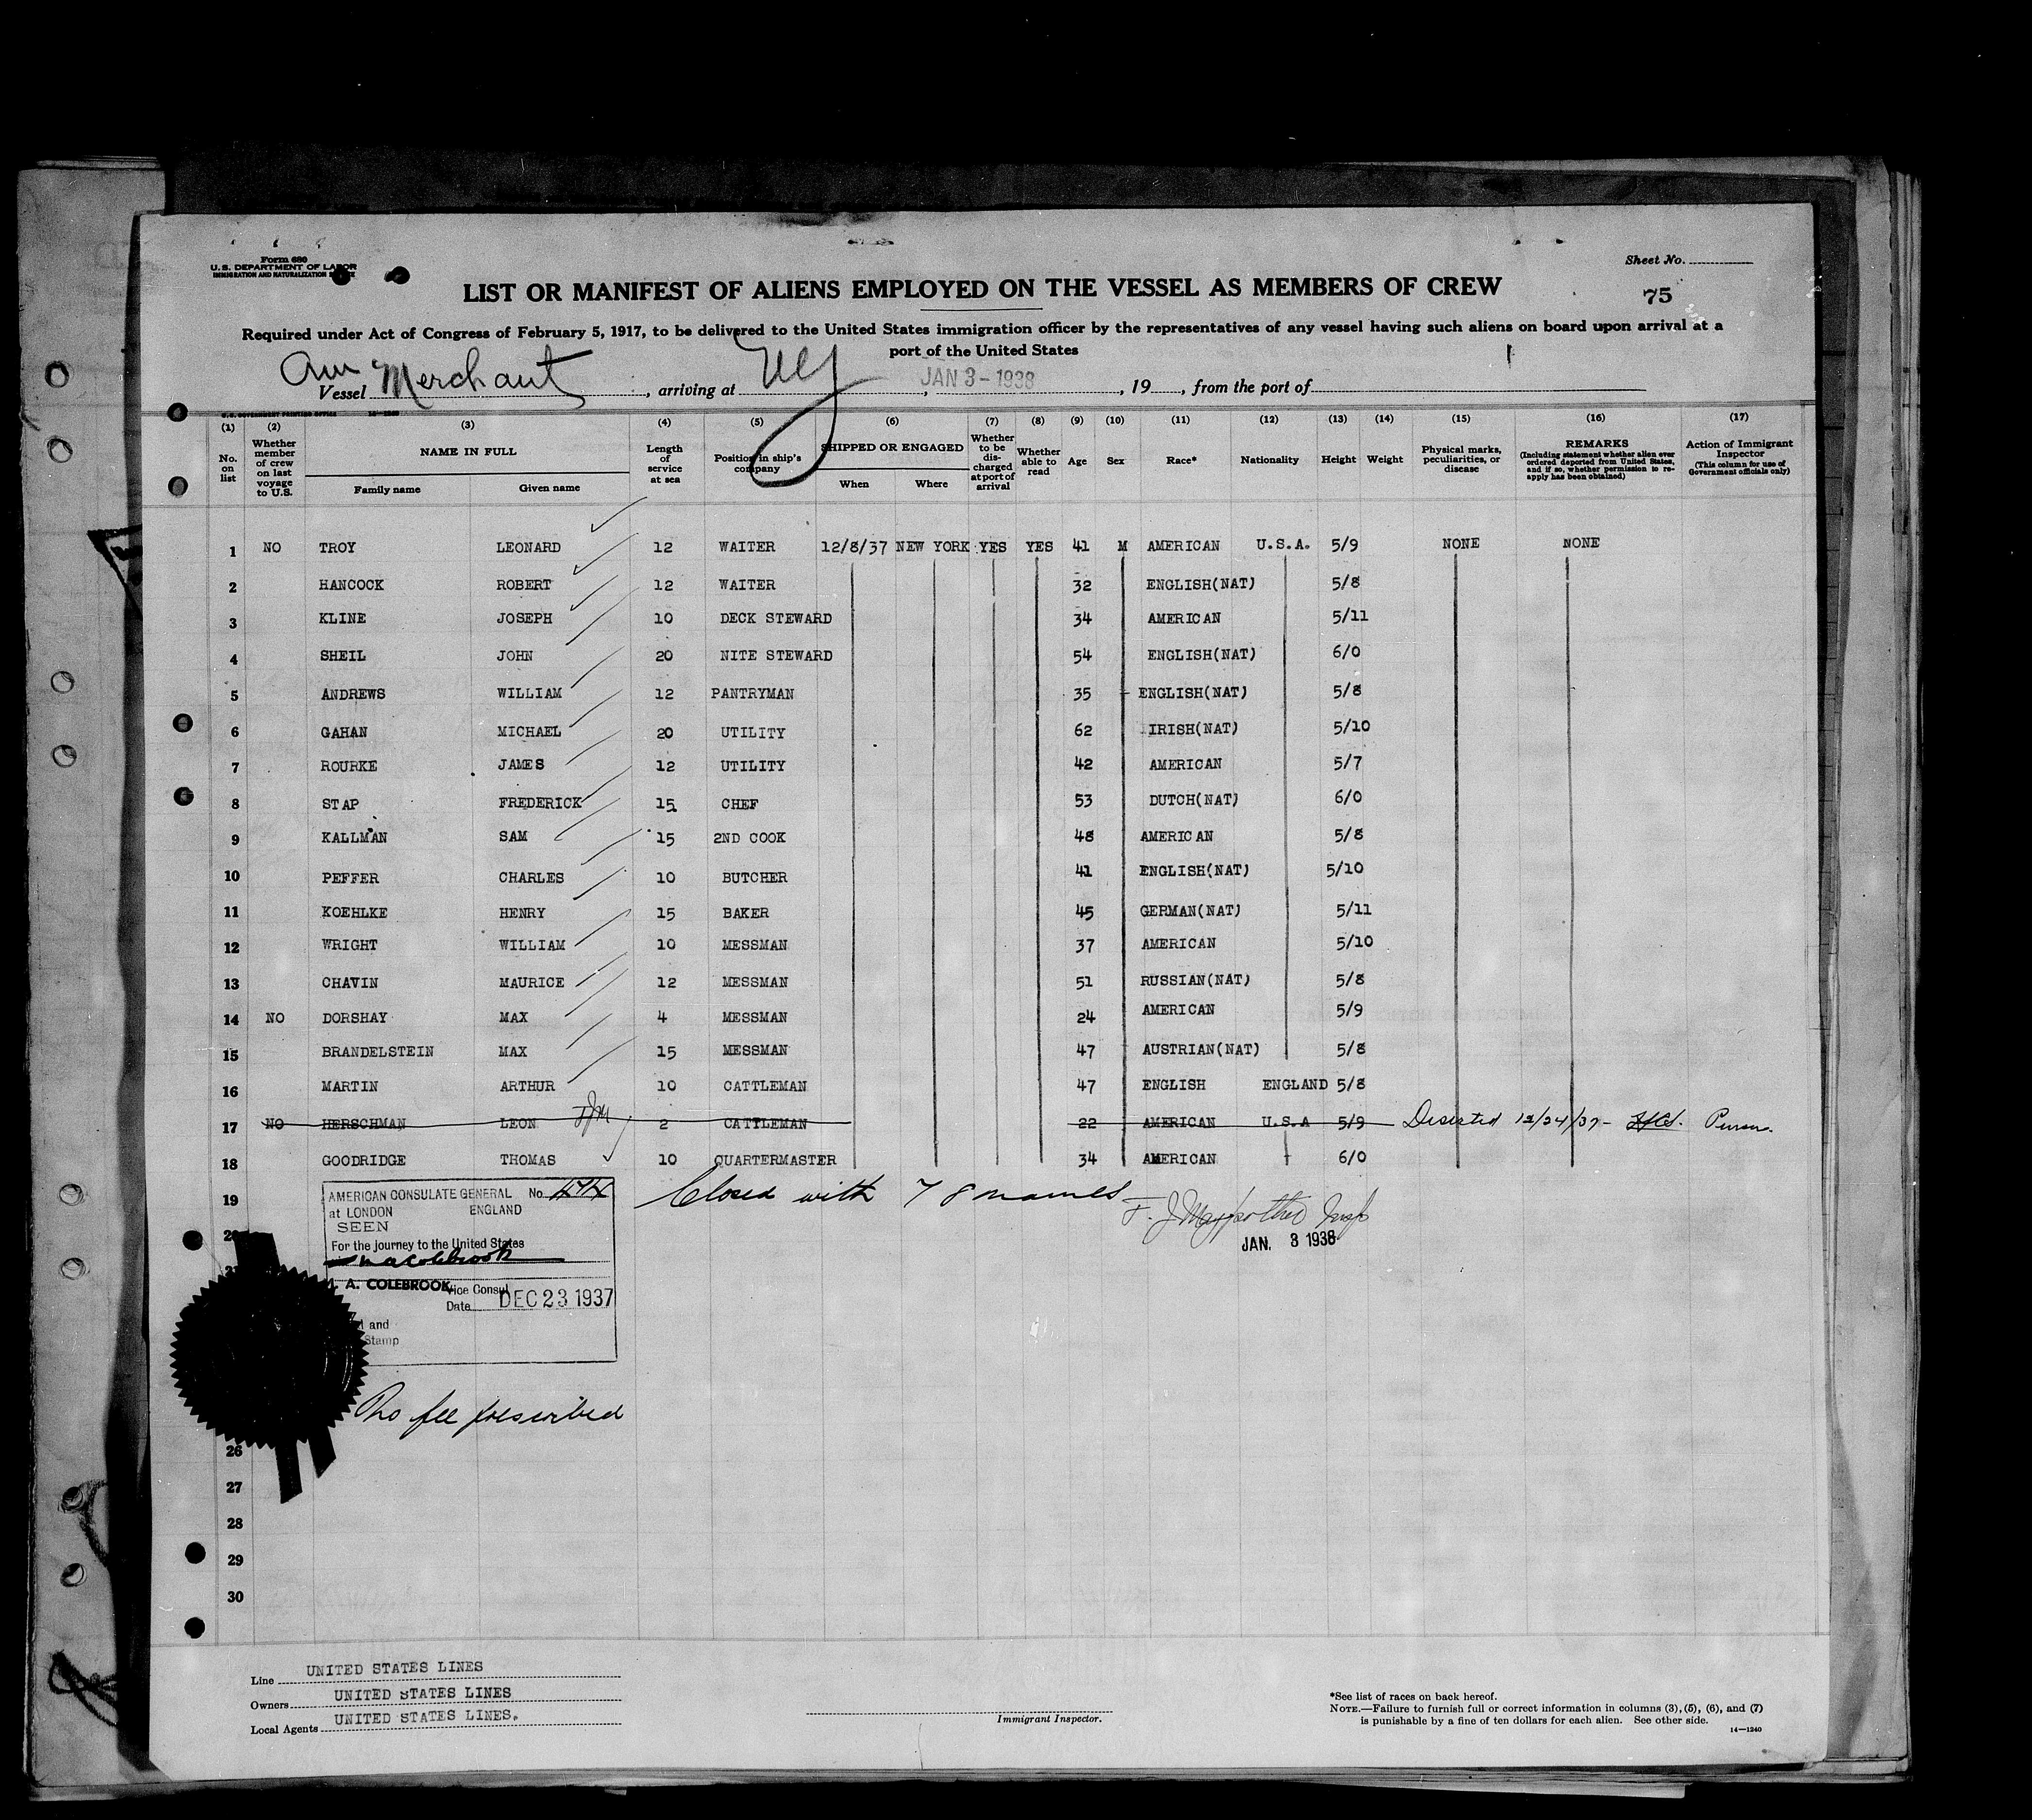 Form 680
U. S. DEPARTMENT OF LABOR
IMMIGRATION AND NATURALIZATION
Sheet No.
75
LIST OR MANIFEST OF ALIENS EMPLOYED ON THE VESSEL AS MEMBERS OF CREW
Required under Act of Congress of February 5, 1917, to be delivered to the United States immigration officer by the representatives of any vessel having such aliens on board upon arrival at a
port of the United States
Vessel Am Merchant, arriving at NY, JAN 3 - 1938, 19, from the port of
U. S. GOVERNMENT PRINTING OFFICE
(1) (2) (3) (4) (5) (6) (7) (8) (9) (10) (11) (12) (13) (14) (15) (16) (17)
No. on list
Whether member of crew on last voyage to U.S.
NAME IN FULL
Family name Given name
Length of service at sea
Position in ship's company
SHIPPED OR ENGAGED
When Where
Whether to be discharged at port of arrival
Whether able to read
Age
Sex
Race*
Nationality
Height
Weight
Physical marks, peculiarities, or disease
REMARKS
(Including statement whether alien ever ordered deported from United States, and if so, whether permission to reapply has been obtained)
Action of Immigrant Inspector
(This column for use of Government officials only)
1 NO TROY LEONARD 12 WAITER 12/8/37 NEW YORK YES YES 41 M AMERICAN U.S.A. 5/9 NONE NONE
2 HANCOCK ROBERT 12 WAITER 32 ENGLISH(NAT) 5/8
3 KLINE JOSEPH 10 DECK STEWARD 34 AMERICAN 5/11
4 SHEIL JOHN 20 NITE STEWARD 54 ENGLISH(NAT) 6/0
5 ANDREWS WILLIAM 12 PANTRYMAN 35 ENGLISH(NAT) 5/8
6 GAHAN MICHAEL 20 UTILITY 62 IRISH(NAT) 5/10
7 ROURKE JAMES 12 UTILITY 42 AMERICAN 5/7
8 STAP FREDERICK 15 CHEF 53 DUTCH(NAT) 6/0
9 KALLMAN SAM 15 2ND COOK 48 AMERICAN 5/8
10 PEFFER CHARLES 10 BUTCHER 41 ENGLISH(NAT) 5/10
11 KOEHLKE HENRY 15 BAKER 45 GERMAN(NAT) 5/11
12 WRIGHT WILLIAM 10 MESSMAN 37 AMERICAN 5/10
13 CHAVIN MAURICE 12 MESSMAN 51 RUSSIAN(NAT) 5/8
14 NO DORSHAY MAX 4 MESSMAN 24 AMERICAN 5/9
15 BRANDELSTEIN MAX 15 MESSMAN 47 AUSTRIAN(NAT) 5/8
16 MARTIN ARTHUR 10 CATTLEMAN 47 ENGLISH ENGLAND 5/8
17 NO HERSCHMAN LEON 2 CATTLEMAN 22 AMERICAN U.S.A 5/9 Deserted 12/24/37-
18 GOODRIDGE THOMAS 10 QUARTERMASTER 34 AMERICAN 6/0
19 Closed with 78 names
JAN. 3 1938
AMERICAN CONSULATE GENERAL No.
at LONDON ENGLAND
SEEN
For the journey to the United States
A. COLEBROOK
Vice Consul
Date DEC 23 1937
and
Stamp
No fee prescribed
26
27
28
29
30
Line UNITED STATES LINES
Owners UNITED STATES LINES
Local Agents UNITED STATES LINES.
Immigrant Inspector.
*See list of races on back hereof.
NOTE.—Failure to furnish full or correct information in columns (3), (5), (6), and (7)
is punishable by a fine of ten dollars for each alien. See other side.
14—1240